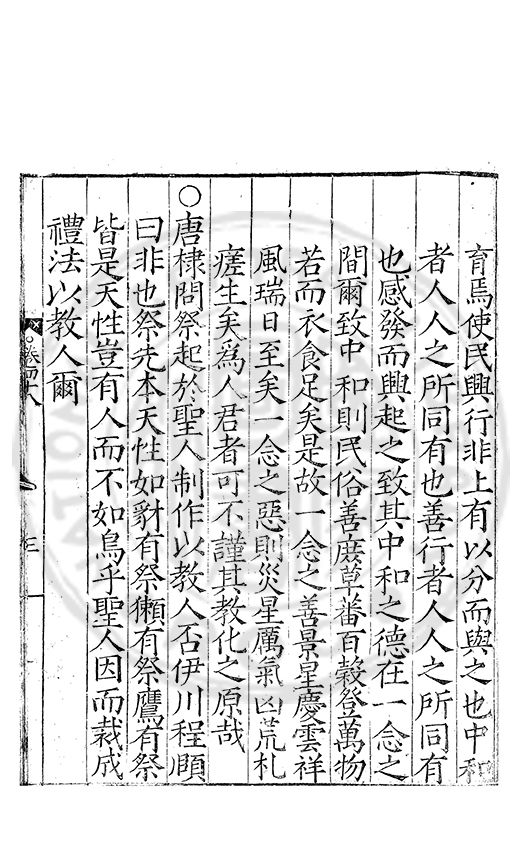 育焉使民興行非上有以分而與之也中和
者人人之所同有也善行者人人之所同有
也感發而興起之致其中和之德在一念之
間爾致中和則民俗善庶草蕃百穀登萬物
若而衣食足矣是故一念之善景星慶雲祥
風瑞日至矣一念之惡則災星厲氣凶荒札
瘥生矣為人君者可不謹其教化之原哉
○唐棣問祭起於聖人制作以教人否伊川程頤
曰非也祭先本天性如豺有祭獺有祭鷹有祭
皆是天性豈有人而不如鳥乎聖人因而裁成
禮法以教人爾
三